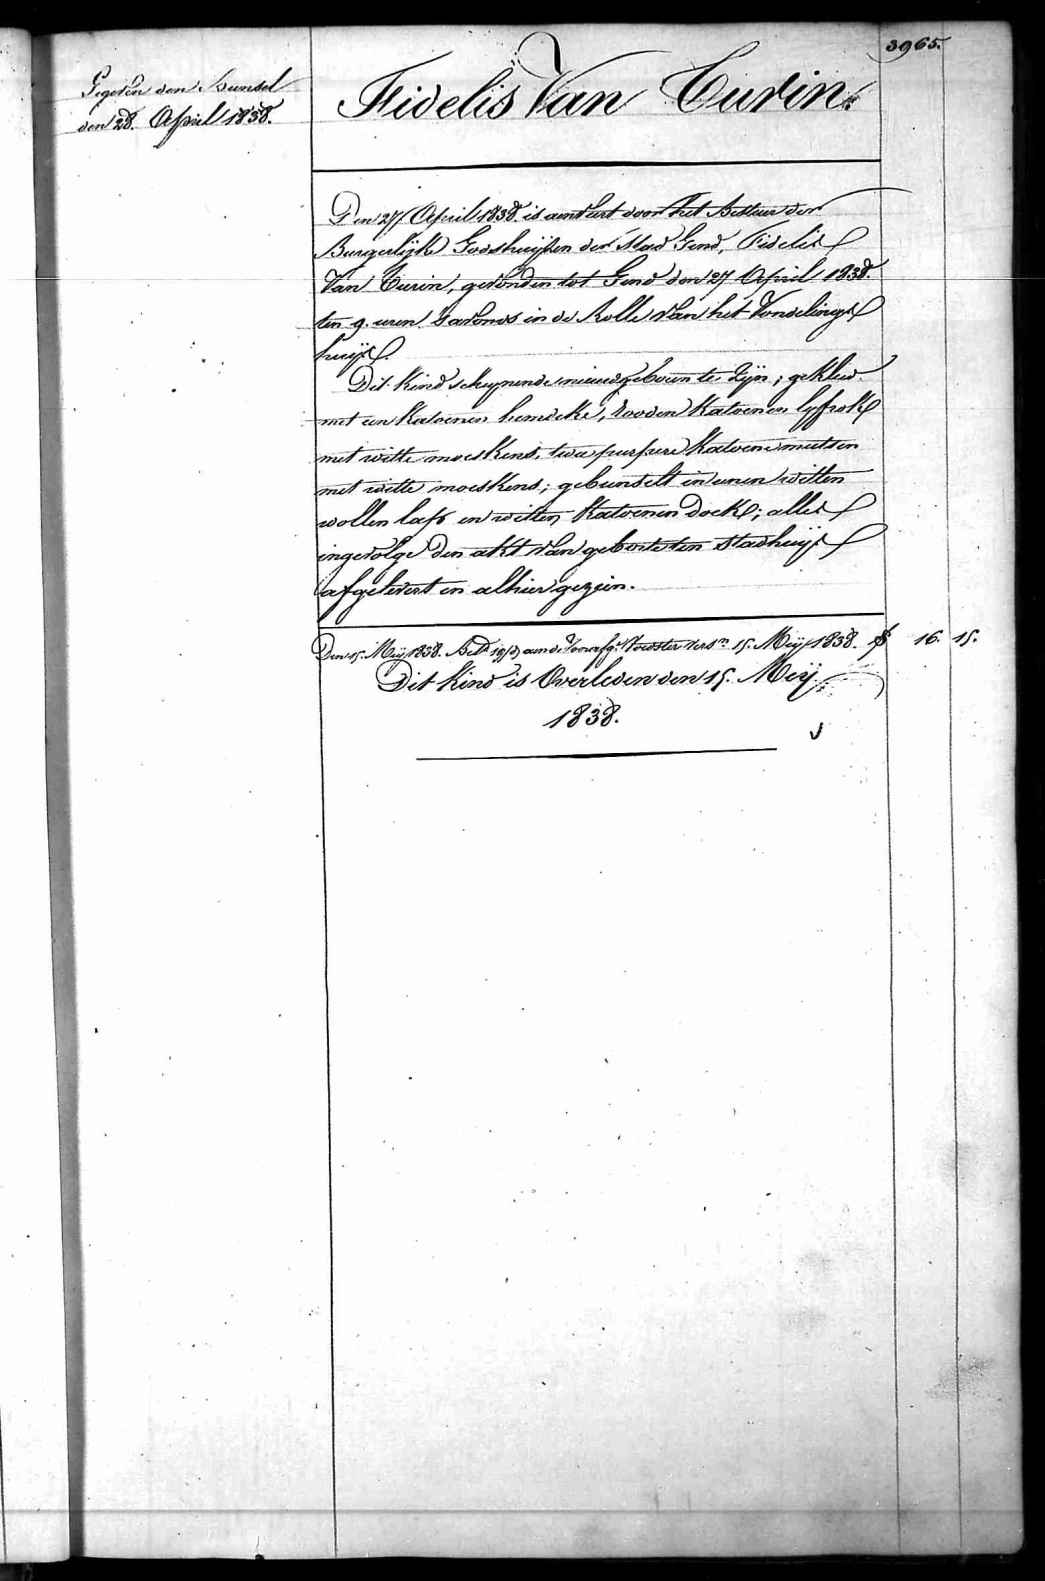 3965.
Gegeven den bunsel
den 28. April 1838.
Fidelis Van Turin.
Den 27 April 1838. is aenveert door het Bestuer der
Burgerlijke Godshuijsen der Stad Gend, Fidelis
Van Turin, gevonden tot Gend den 27 April 1838.
ten 9. uren s'avonds in de Rolle van het Vondelings
huijs.
Dit kind schynende nieuwgeboren te zijn; gekleed
met een katoenen hemdeke, rooden katoenen lyfrok
met witte moeskens, twee purpere katoene mutsen
met witte moeskens; gebunselt in eenen witten
wollen lap en witten katoenen doek; alles
ingevolge den akt van geboorte ten stadhuijse
afgelevert en alhier gezien.
Den 15. Meij 1838. Bet. aen de Voorafg. Voedster 15. Meij 1838. 16. 15.
Dit Kind is Overleden den 15. Meij
1838.